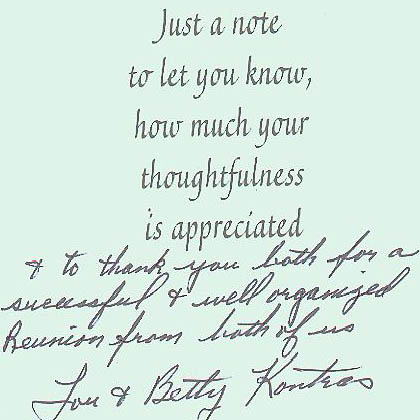 Just a note
to let you know,
how much your
thoughtfulness
is appreciated
& to thank you both for a
successful & well organized
Reunion from both of us
Lou & Betty Kontras